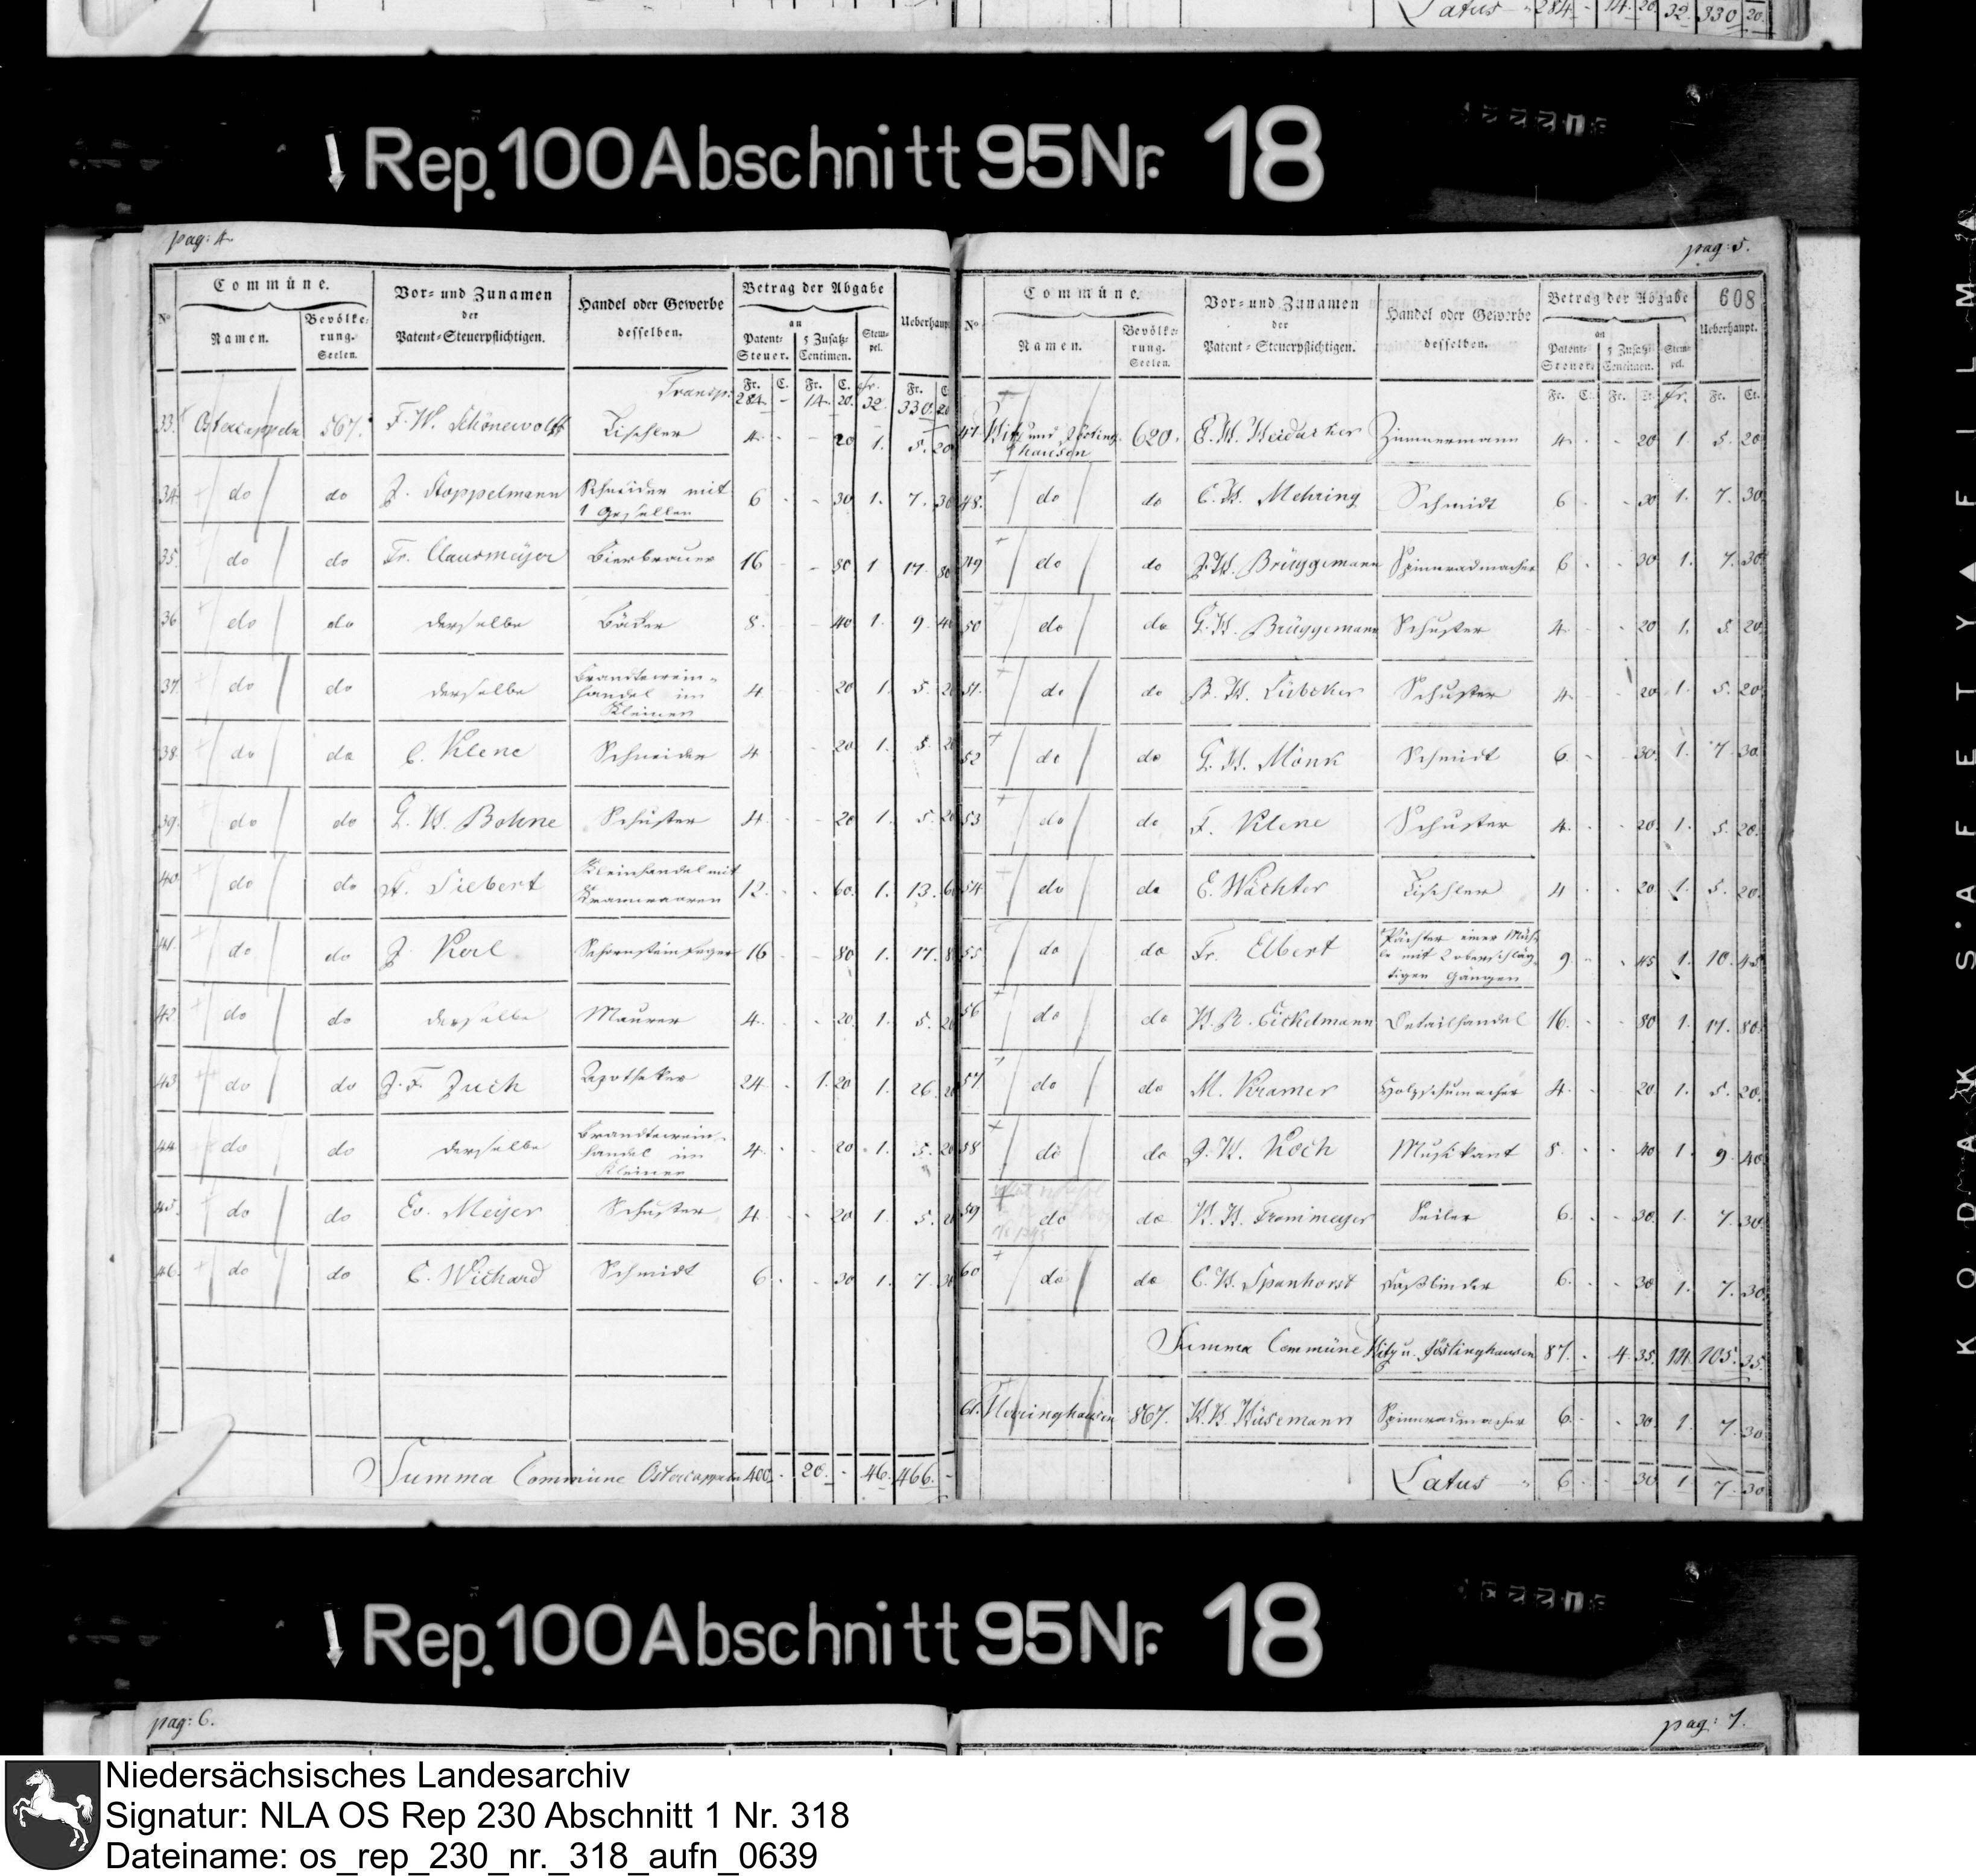 Latus 284 - 14. 20. 32. 330. 20.
Rep. 100 Abschnitt 95 Nr. 18
pag: 4.
Commüne.
Vor- und Zunamen
der
Patent-Steuerpflichtigen.
Handel oder Gewerbe
desselben.
Betrag der Abgabe
an
Ueberhaupt
No
Namen.
Bevölke-
rung.
Seelen.
Patent-
Steuer.
5 Zusatz-
Centimen.
Stem-
pel.
Fr. C. Fr. C. fr. Fr. C.
Transp: 284. - 14. 20. 32. 330. 20
33. Ostercappeln 567. F. W. Schönewolff Tischler 4. - - 20 1. 5. 20
34. do do J. Stoppelmann Schneider mit
1 Gesellen 6 - - 30 1. 7. 30
35. do do Fr. Clausmeÿer Bierbrauer 16 - - 80 1 17. 80
36 do do derselbe Bäcker 8. - 40 1. 9. 40
37. do do derselbe Brandtewein-
handel im
Kleinen 4. 20 1. 5. 20
38. do do C. Klene Schneider 4. - 20 1. 5. 20
39. do do G. H. Bohne Schuster 4. - - 20 1. 5. 20
40. do do Siebert Kleinhandel mit
Kramwaaren 12. - - 60. 1. 13. 60
41. do do J. Kerl Schornsteinfeger 16 - - 80 1. 17. 80
42 do do derselbe Maurer 4. - 20. 1. 5. 20
43 do do J. F. Juch Apotheker 24. - 1. 20 1. 26. 20
44 do do derselbe Brandtewein-
handel im
Kleinen 4. - - 20 1. 5. 20
45. do do Ev. Meÿer Schuster 4. - - 20 1. 5. 20
46. do do C. Wichard Schmidt 6. - - 30 1. 7. 30
Summa Commüne Ostercappeln 400. - 20. - 46. 466. -
pag: 5.
608
Commüne.
Vor- und Zunamen
der
Patent-Steuerpflichtigen.
Handel oder Gewerbe
desselben.
Betrag der Abgabe
an
Ueberhaupt.
No
Namen.
Bevölke-
rung.
Seelen.
Patent-
Steuer.
5 Zusatz-
Centimen.
Stem-
pel.
Fr. C. Fr. C. fr. Fr. Ct.
47. Hitz und Jösting-
hausen 620. Zimmermann 4. - 20 1. 5. 20
48. do do C. H. Mehring Schmidt 6 - - 30 1. 7. 30
49 do do J. H. Brüggemann Spinnradmacher 6 - - 30 1. 7. 30
50 do do G. H. Brüggemann Schuster 4. - 20 1. 5. 20
51. do do B. H. Lübcker Schuster 4. 20 1. 5. 20
52 do do G. H. Mönk Schmidt 6. - 30. 1. 7. 30.
53 do do F. Klene Schuster 4. - - 20. 1. 5. 20.
54 do do E. Wächter Tischler 4 - - 20 1. 5. 20.
55 do do Fr. Elbert Pächter einer Müh-
le mit 2 oberschläg-
tigen Gängen 9. - - 45 1. 10. 45
56 do do H. R. Eickelmann Detailhandel 16. - - 80 1. 17. 80.
57. do do M. Kramer Holzschumacher 4. - 20 1. 5. 20.
58 do do J. H. Koch Musikant 8. - - 40 1. 9. 40.
59 do do H. H. Frommeyer Seiler 6. - - 30. 1. 7. 30.
60 do do C. H. Spanhorst Faßbinder 6. - 30 1. 7. 30.
Summa Commüne Hitz u. Jöstinghausen 87. - 4. 35. 14. 105. 35.
61. Herringhausen 867. H. H. Hüsemann Spinnradmacher 6. - 30. 1. 7. 30
Latus - 6 - - 30 1. 7. 30
Rep. 100 Abschnitt 95 Nr. 18
pag: 6.
pag: 7.
KODAK S'AFETY▲FILM
Niedersächsisches Landesarchiv
Signatur: NLA OS Rep 230 Abschnitt 1 Nr. 318
Dateiname: os_rep_230_nr._318_aufn_0639